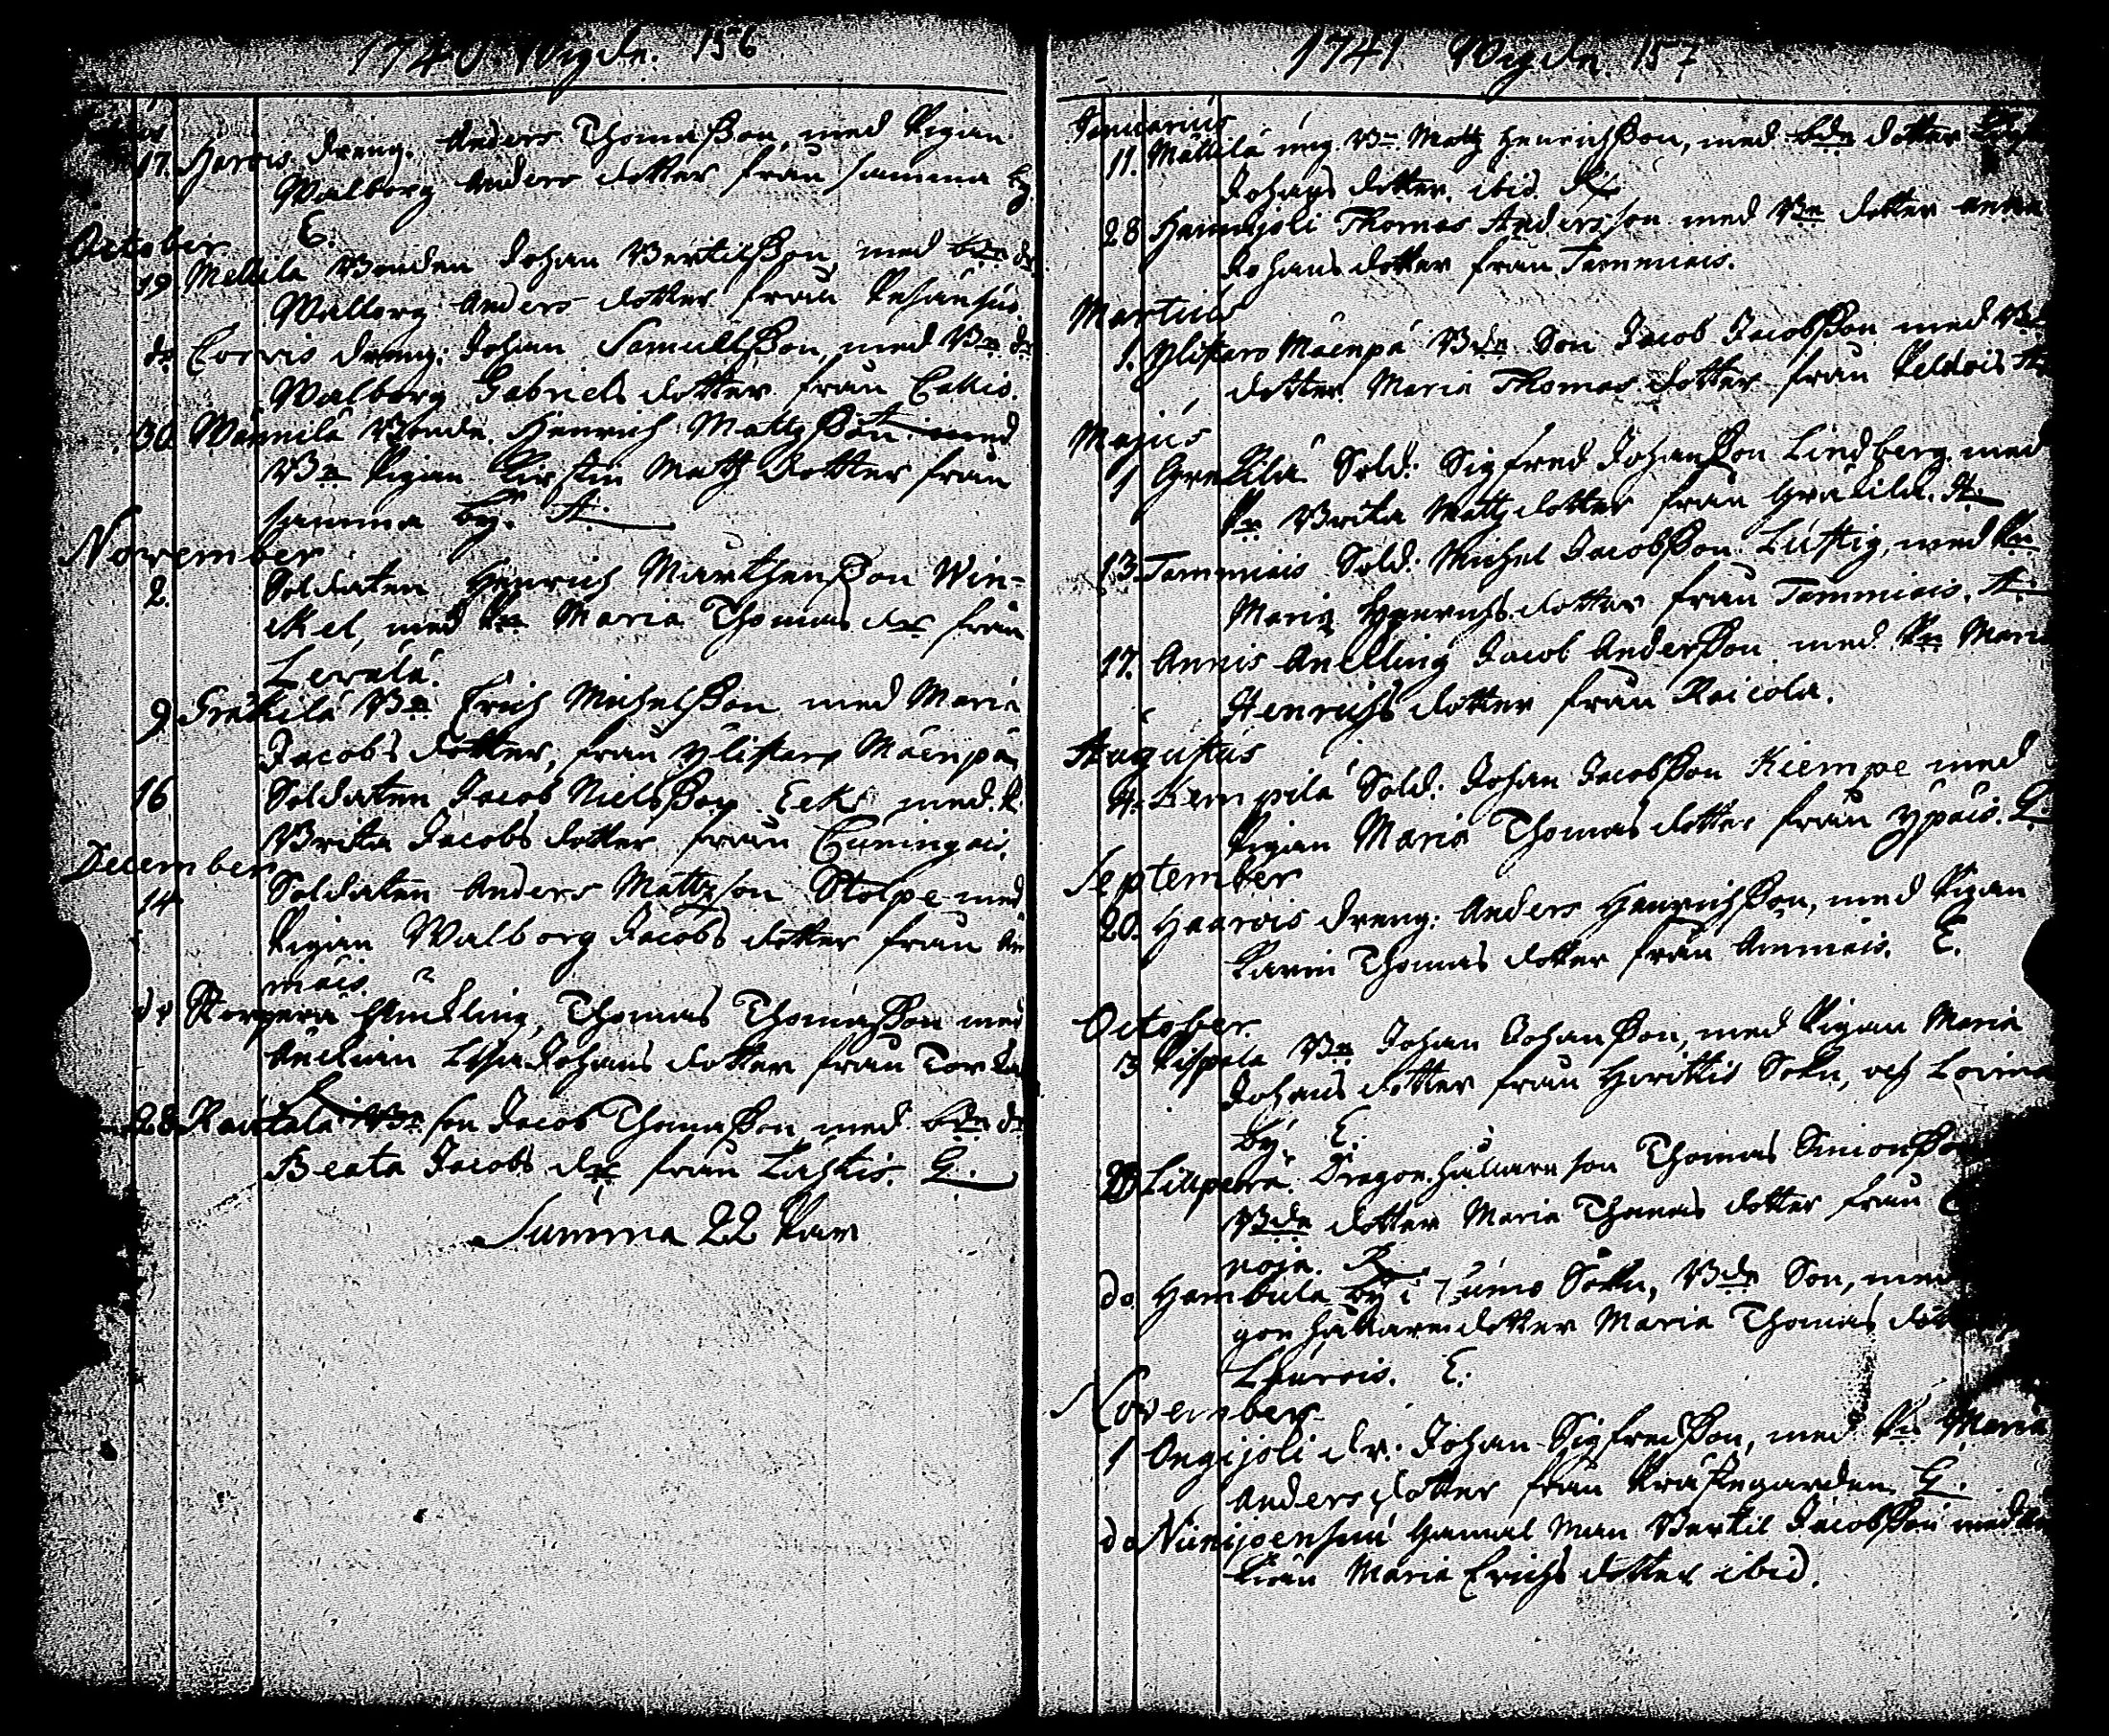 1740 Wigde. 156
17. Harois dreng. Anders Thomasson, med Pigan
Walborg Anders dotter från samma by
E.
October
19 Mellilä Bonden Johan Bertilsson, med bde dr
Walborg Anders dotter från
do Corvis dreng: Johan Samuelsson, med Bn dr
Walborg Gabriels dotter från Collis.
30 Wännilä Bonde. Henrich Mattsson med
Bn Pigan Kirstin Matts dotter från
samma by. A.
November
2. Soldaten Henrich Mårthensson Win-
ckel, med Pn Maria Thomas dr från
Levälä.
9 Gräkilä Bn Erich Michelsson med Maria
Jacobs dotter, från Ylistaro Mäenpä
16 Soldaten Jacob Nielsson Eek med P.
Brita Jacobs dotter från Euningois.
December
14 Soldaten Anders Mattsson Stolpe med
Pigan Walborg Jacobs dotter från Am
mäis.
do Korperä Änckling, Thomas Thomasson med
Änckian Lisa Johans dotter från Torka
28 Rautala Bn son Jacob Thomasson, med bde dr
Beata Jacobs dr från Lähtis. G.
Summa 22 Par
1741 Wigde. 157
Januarius
11. Mälliälä ung Bn Matts Henrichsson, med bde dotter
Johans dotter. ibid. R
28 Hennijoki Thomas Andersson med Bn dotter Anna
Johans dotter från Tammiais.
Martius
1. Ylistaro Mäenpä Bde Son Jacob Jacobsson med Bd
dotter Maria Thomas dotter från Peldois A
Majus
1 Gräkilä Sold: Sigfred Johansson Lindberg med
Pn Brita Matts dotter från Gräkilä. A.
13. Tammiais Sold: Michel Jacobsson Lustig, med Pn
Maria Henrichs dotter från Tammiais. A.
17. Annis Anckling Jacob Andersson med Pn Maria
Henrichs dotter från Raicola.
Augustus
4. Kempilä Sold: Johan Jacobsson Kiempe med
Pigan Maria Thomas dotter från Ypäis. G.
September
20. Haarois dreng: Anders Henrichsson, med Pigan
Karin Thomas dotter från Ammäis. E.
October
3 Pispala Bn Johan Johansson, med Pigan Maria
Johans dotter från Honkilax Sokn, och Loima
by. E.
Lillperä. Dragon hållare son Thomas Simonsson
Bde dotter Maria Thomas dotter från
noja. R
do Hambula by i Eumo Sokn, Bde Son, med
gon hållaren dotter Maria Thomas dott
Laurois. E.
November
1 Ongijoki dr: Johan Sigfredsson, med Pn Maria
Anders dotter från Prästegården G.
do Niinijoensuu Gammal Man Bertil Jacobsson med
Maria Erichs dotter ibid.